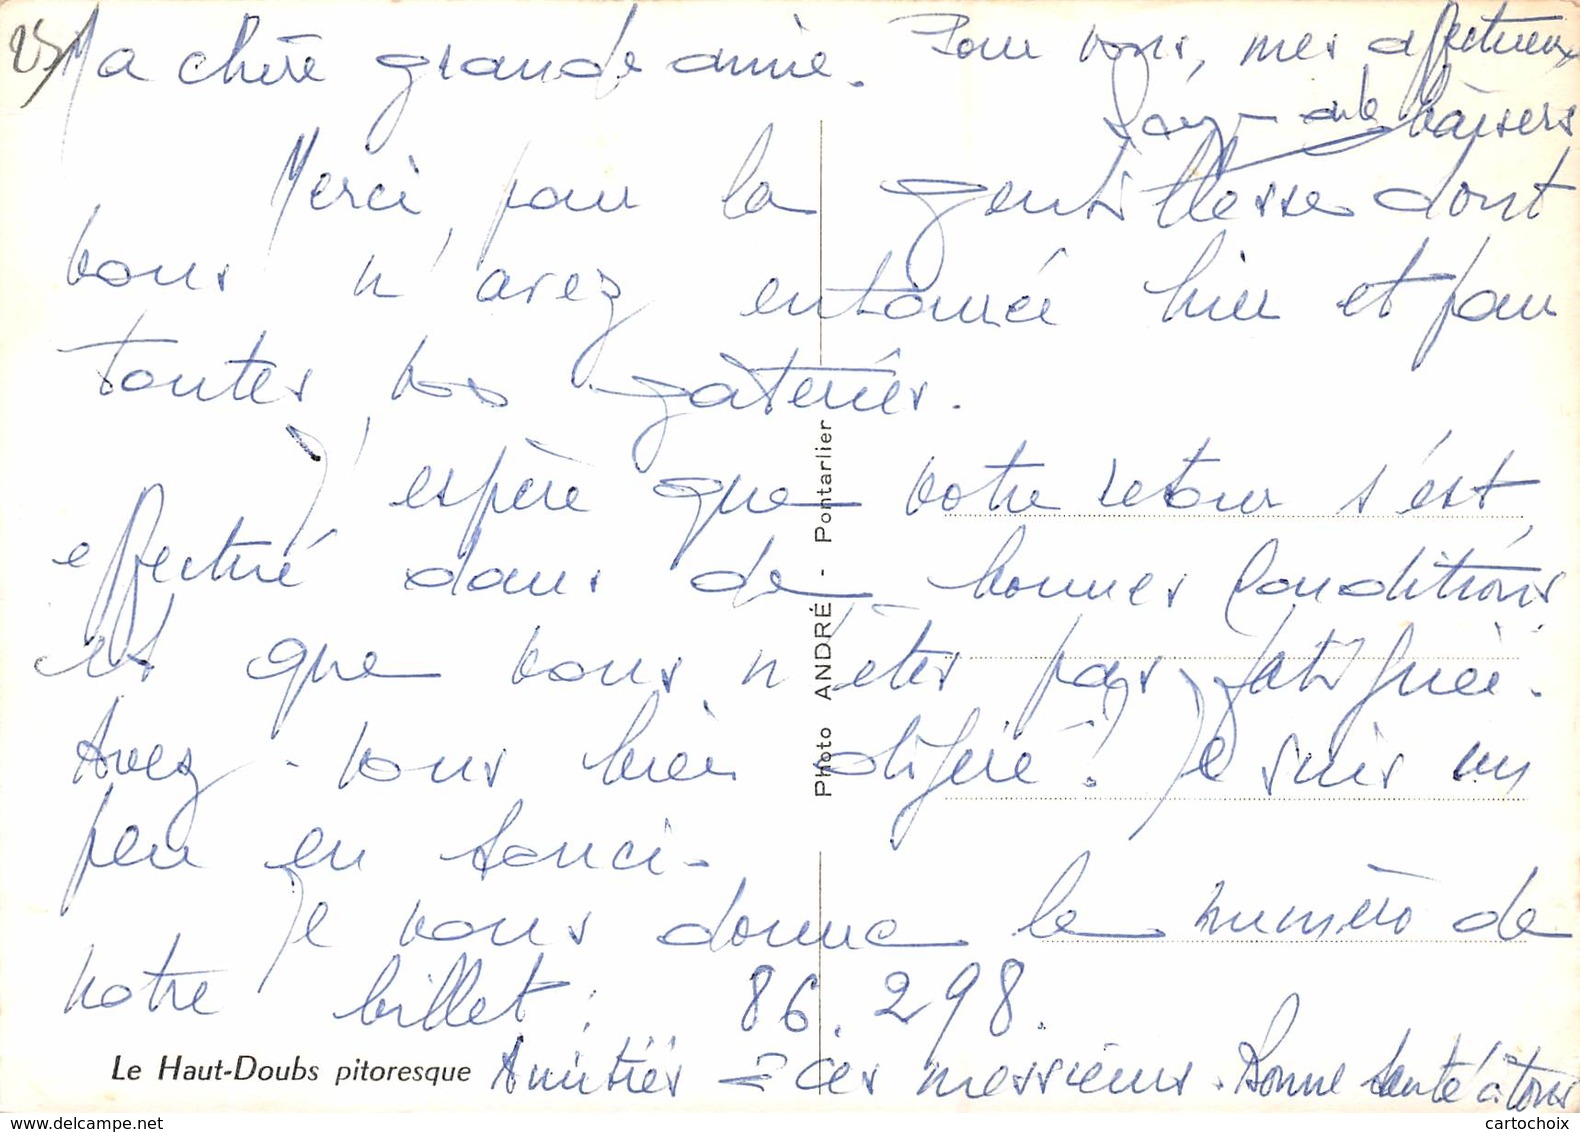 25
Ma chère grande amie.
Merci, pour la gentillesse dont
vous m'avez entourée hier et pour
toutes vos gâteries.
J'espère que votre retour s'est
effectué dans de bonnes conditions
et que vous n'êtes pas fatiguée.
Avez-vous bien digéré? Je suis un
peu en souci.
Je vous donne le numéro de
notre billet : 86.298.
Amitiés à ces messieurs. Bonne santé à tous
Pour vous, mes affectueux
baisers
Photo ANDRÉ - Pontarlier
Le Haut-Doubs pitoresque
www.delcampe.net
cartochoix